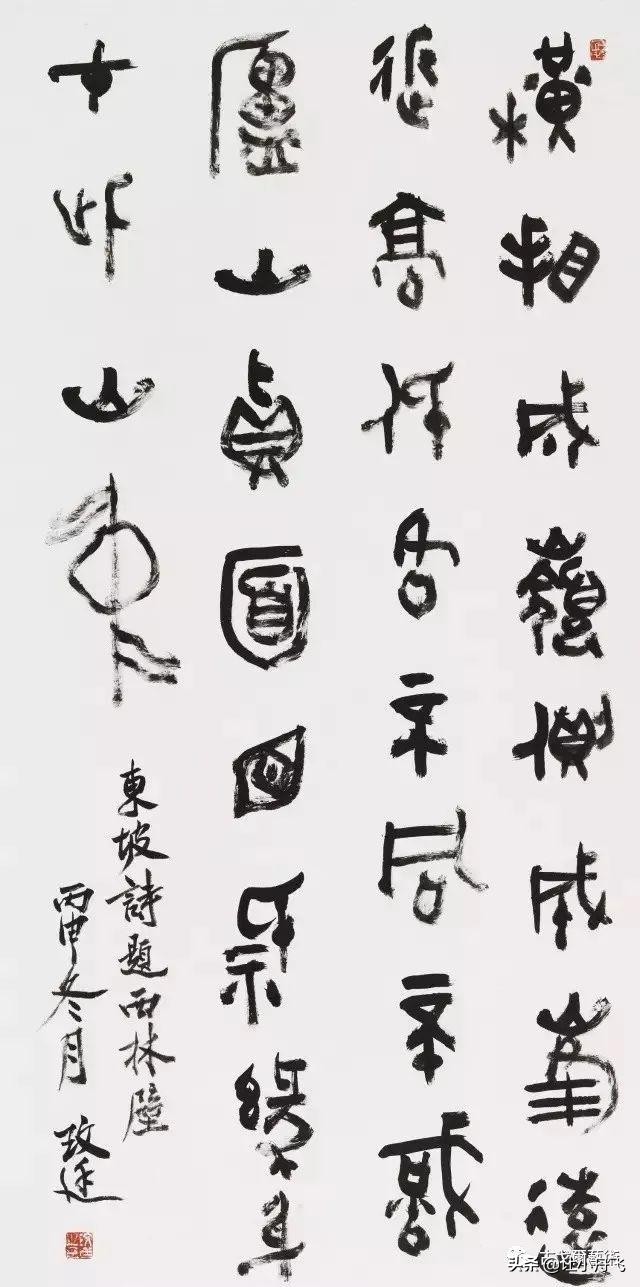 橫看成嶺側成峯遠
近高低各不同不識
廬山真面目祇緣身
在此山中
東坡詩題西林壁
丙申冬月